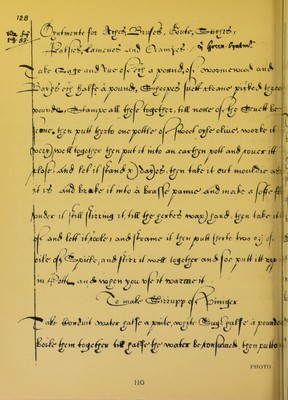 128
Oyntmente for Aches, Bruses, Goute, Singes,
Palsies, Lamenes and Crampes / a green oyntmt
Take Sage and Rue of ech a pound, of wormewood and
Bayes ech halfe a pound, Sheepes suett cleane picked three
pounde, Stampe all these together, till none of the suett be
seene, then putt therto one pottle of sweet oyle olive worke it
very well together then put it into an earthen pott and cover itt
close, and let it stand x dayes, then take it out mouldie as
it is and breake it into a brasse panne and make a softe
under it still stirring it, till the herbes waxe hard, then take it
of and lett it coole, and straine it then putt therto two oz of
oile of Spicke, and stirr it well together and soe putt itt
in Potts, and when you use it warme it
To make Sirrupp of
Take Conduit water halfe a pinte, white Sugr halfe a pounde
boile them together till halfe the water be consumed then putt to
PHOTO
110